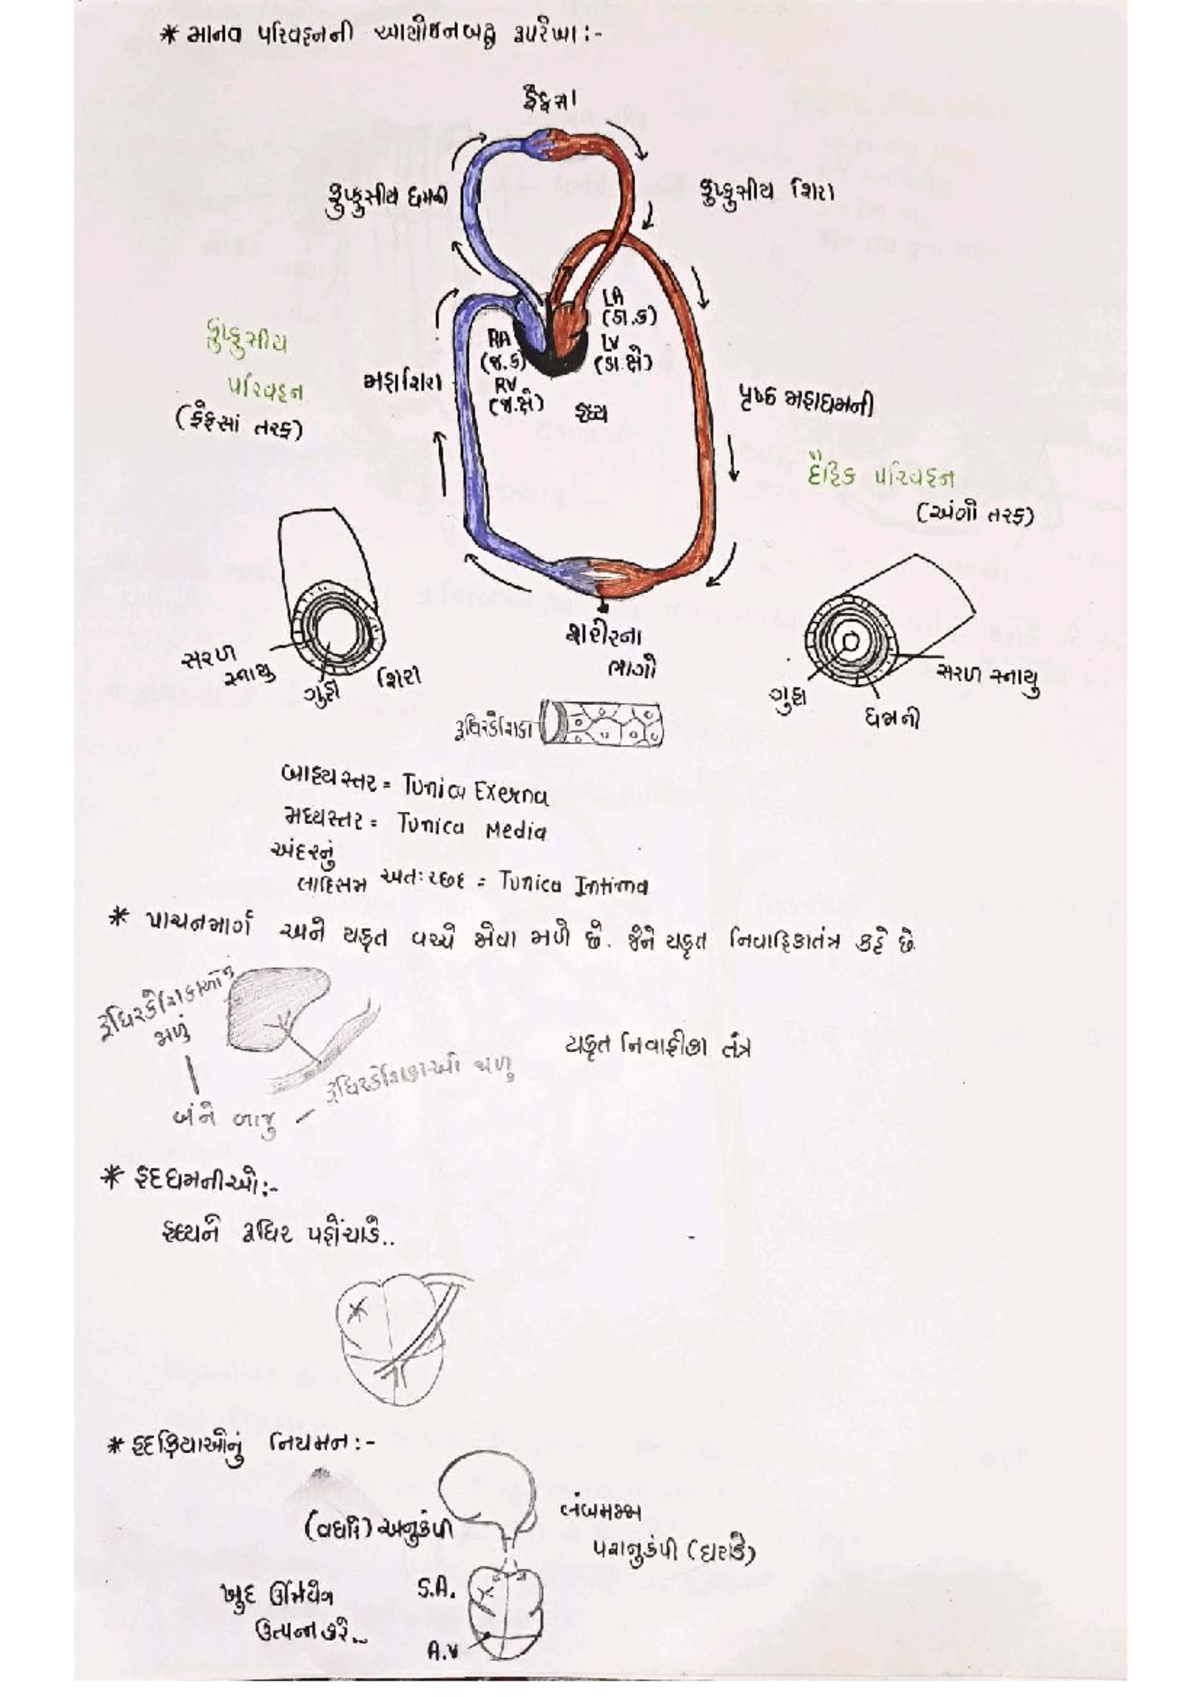 * માનવ પરિવહનની આયોજનબદ્ધ રૂપરેખા:-
ફેફસા
ફુપ્ફુસીય ધમની
ફુપ્ફુસીય શિરા
LA
(ડા.ક)
LV
(ડા.ક્ષે)
RA
(જ.ક)
RV
(જ.ક્ષે)
હૃદય
ફુપ્ફુસીય
પરિવહન
(ફેફસાં તરફ)
મહાશિરા
પૃષ્ઠ મહાધમની
દૈહિક પરિવહન
(અંગો તરફ)
શરીરના
ભાગો
સરળ
સ્નાયુ
ગુહા
શિરા
ગુહા
ધમની
સરળ સ્નાયુ
રૂધિરકેશિકા
બાહ્યસ્તર = Tunica Exerna
મધ્યસ્તર = Tunica Media
અંદરનું
લાદિસમ અતઃચ્છદ = Tunica Intima
* પાચનમાર્ગ અને યકૃત વચ્ચે જોવા મળે છે. જેને યકૃત નિવાહિકાતંત્ર કહે છે
રૂધિરકેશિકાઓનું
જાળું
બંને બાજુ
રૂધિરકેશિકાઓ જાળુ
યકૃત નિવાહીકા તંત્ર
* હૃદધમનીઓ:-
હૃદયને રૂધિર પહોંચાડે..
* હૃદક્રિયાઓનું નિયમન:-
(વધારે) અનુકંપી
લંબમજ્જા
પરાનુકંપી (ઘટાડે)
ખુદ ઊર્મિવેગ
ઉત્પન્ન કરે..
S.A.
A.V